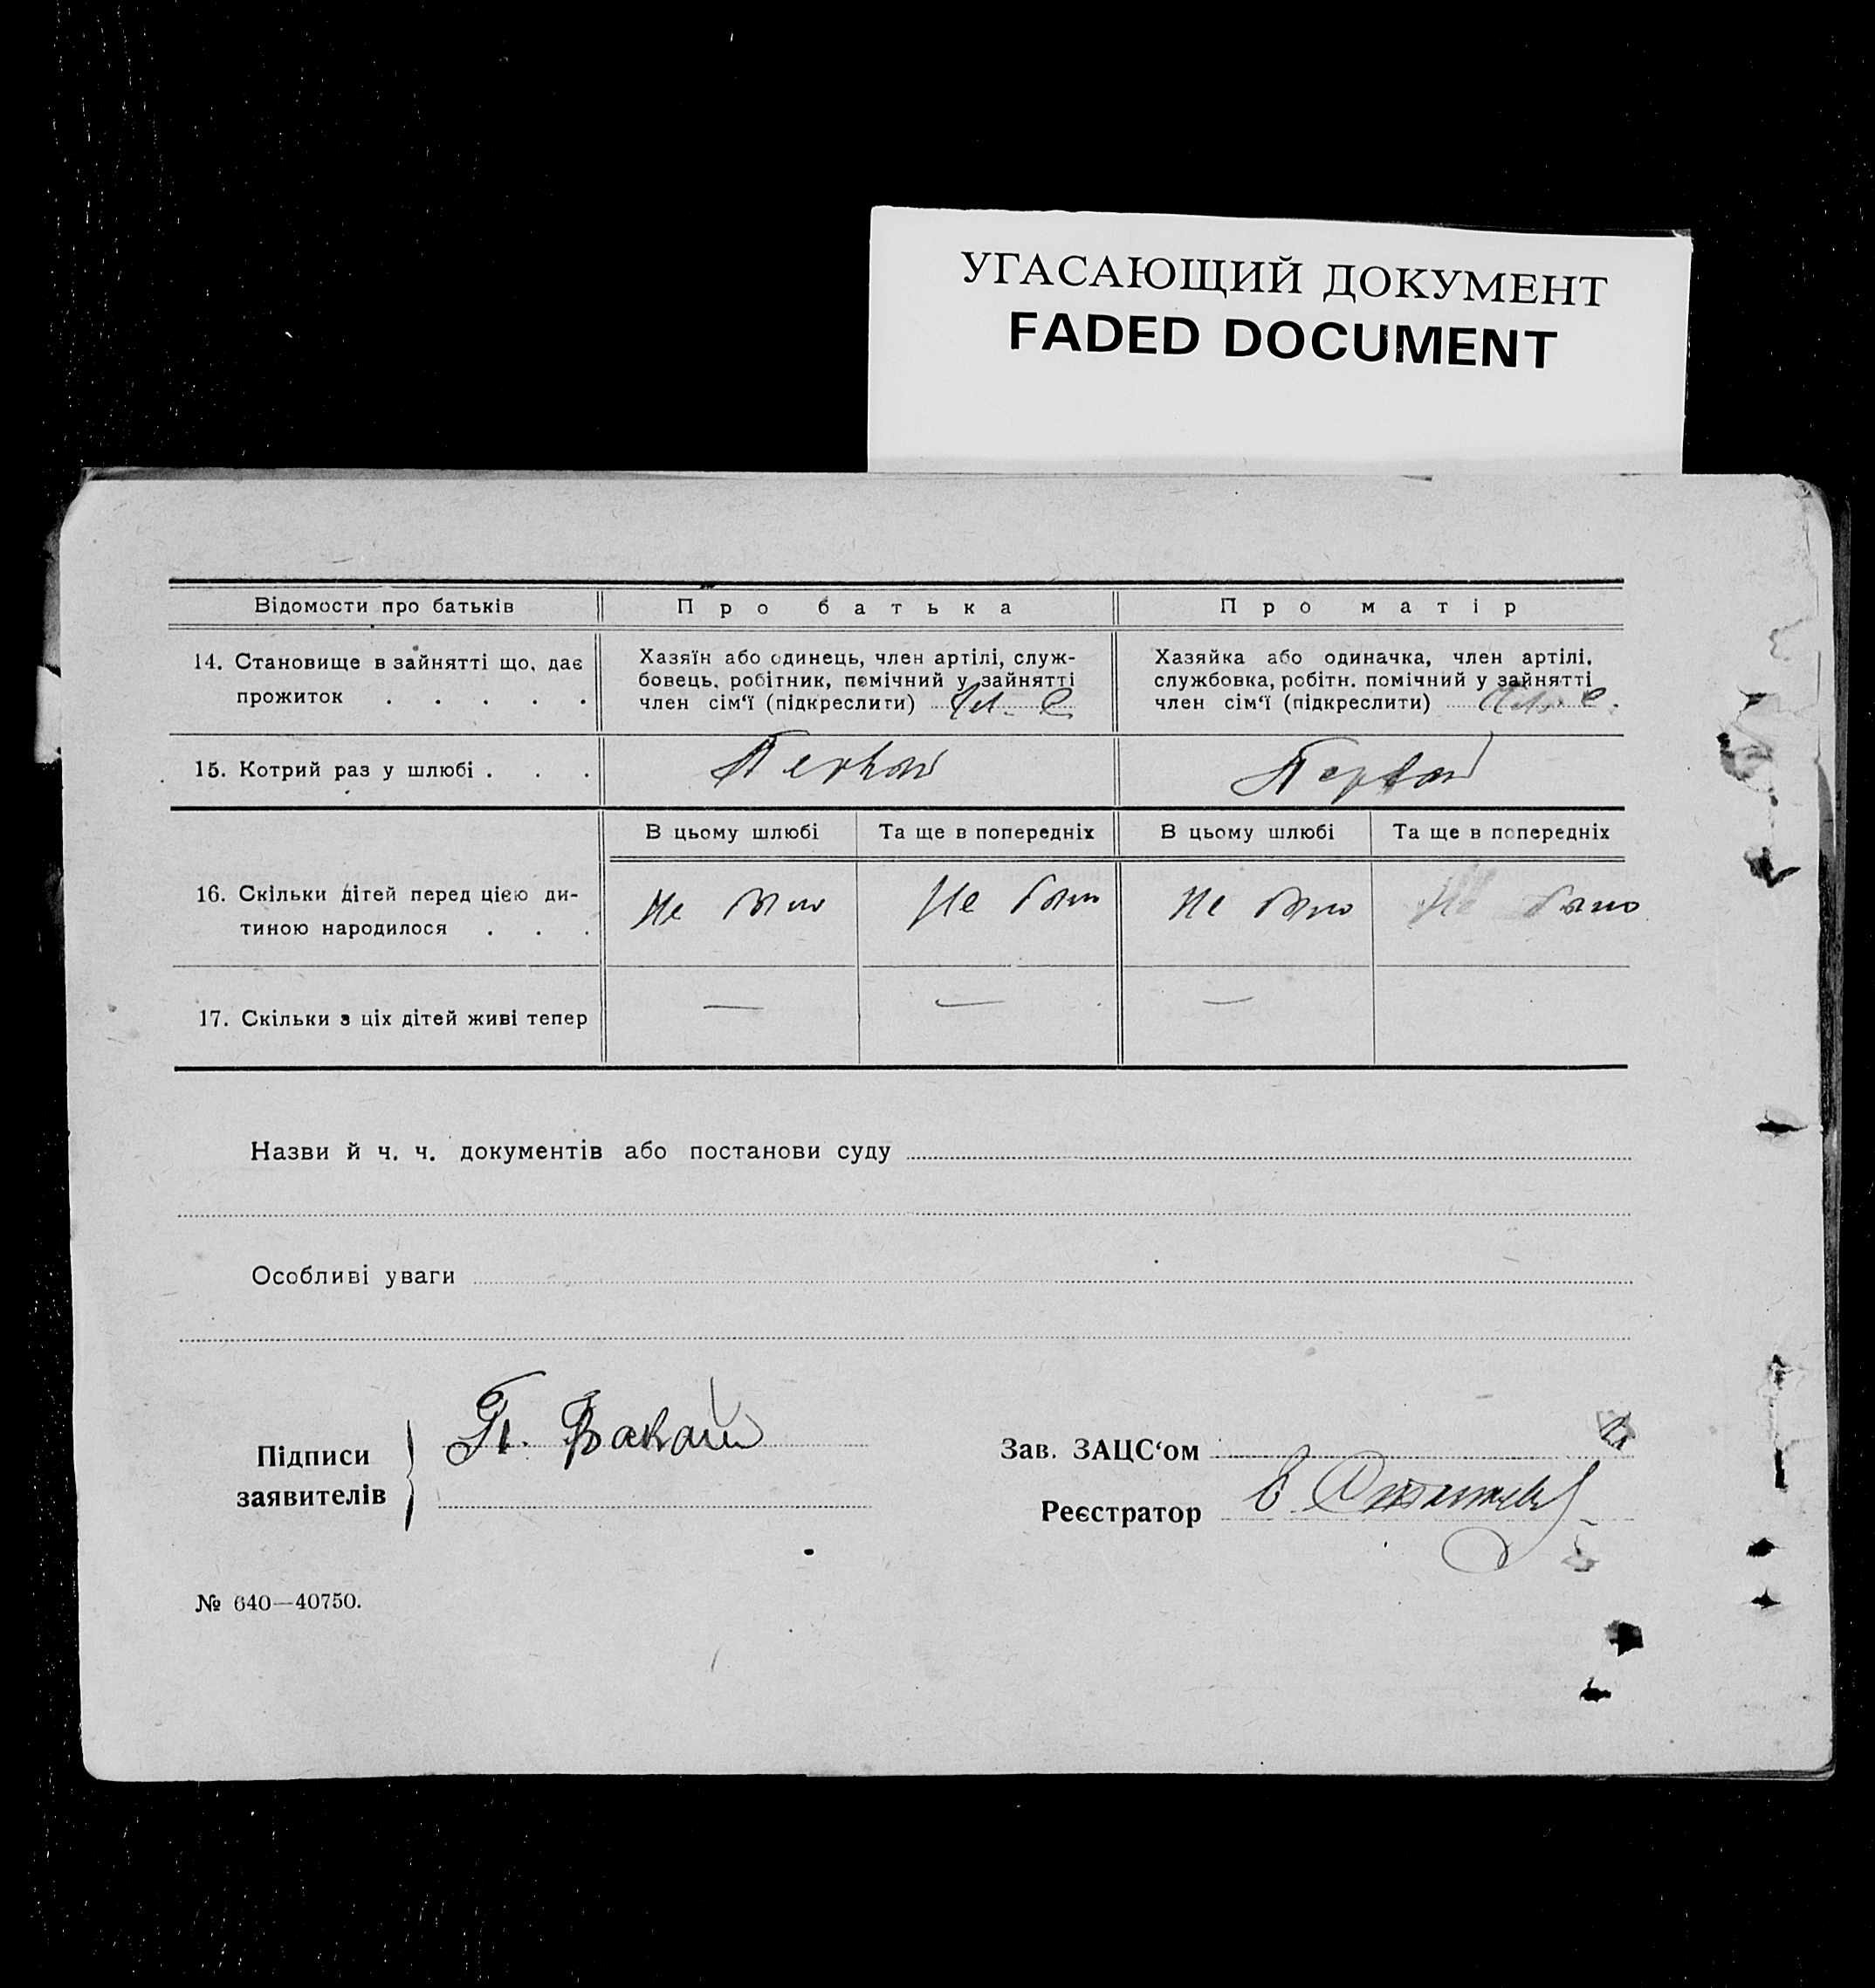 УГАСАЮЩИЙ ДОКУМЕНТ
FADED DOCUMENT
Відомости про батьків
Про батька
Про матір
14. Становище в зайнятті що, дає
прожиток . . . . .
Хазяїн або одинець, член артілі, служ-
бовець, робітник, помічний у зайнятті
член сім‘ї (підкреслити) Чл. С
Хазяйка або одиначка, член артілі,
службовка, робітн. помічний у зайнятті
член сім‘ї (підкреслити) Чл. С.
15. Котрий раз у шлюбі . . .
Первий
Первий
В цьому шлюбі
Та ще в попередніх
В цьому шлюбі
Та ще в попередніх
16. Скільки дітей перед цією ди-
тиною народилося . . .
Не було
Не було
Не було
Не було
17. Скільки з ціх дітей живі тепер
—
—
—
Назви й ч. ч. документів або постанови суду
Особливі уваги
Підписи
заявителів
Зав. ЗАЦС‘ом
Реєстратор
№ 640—40750.